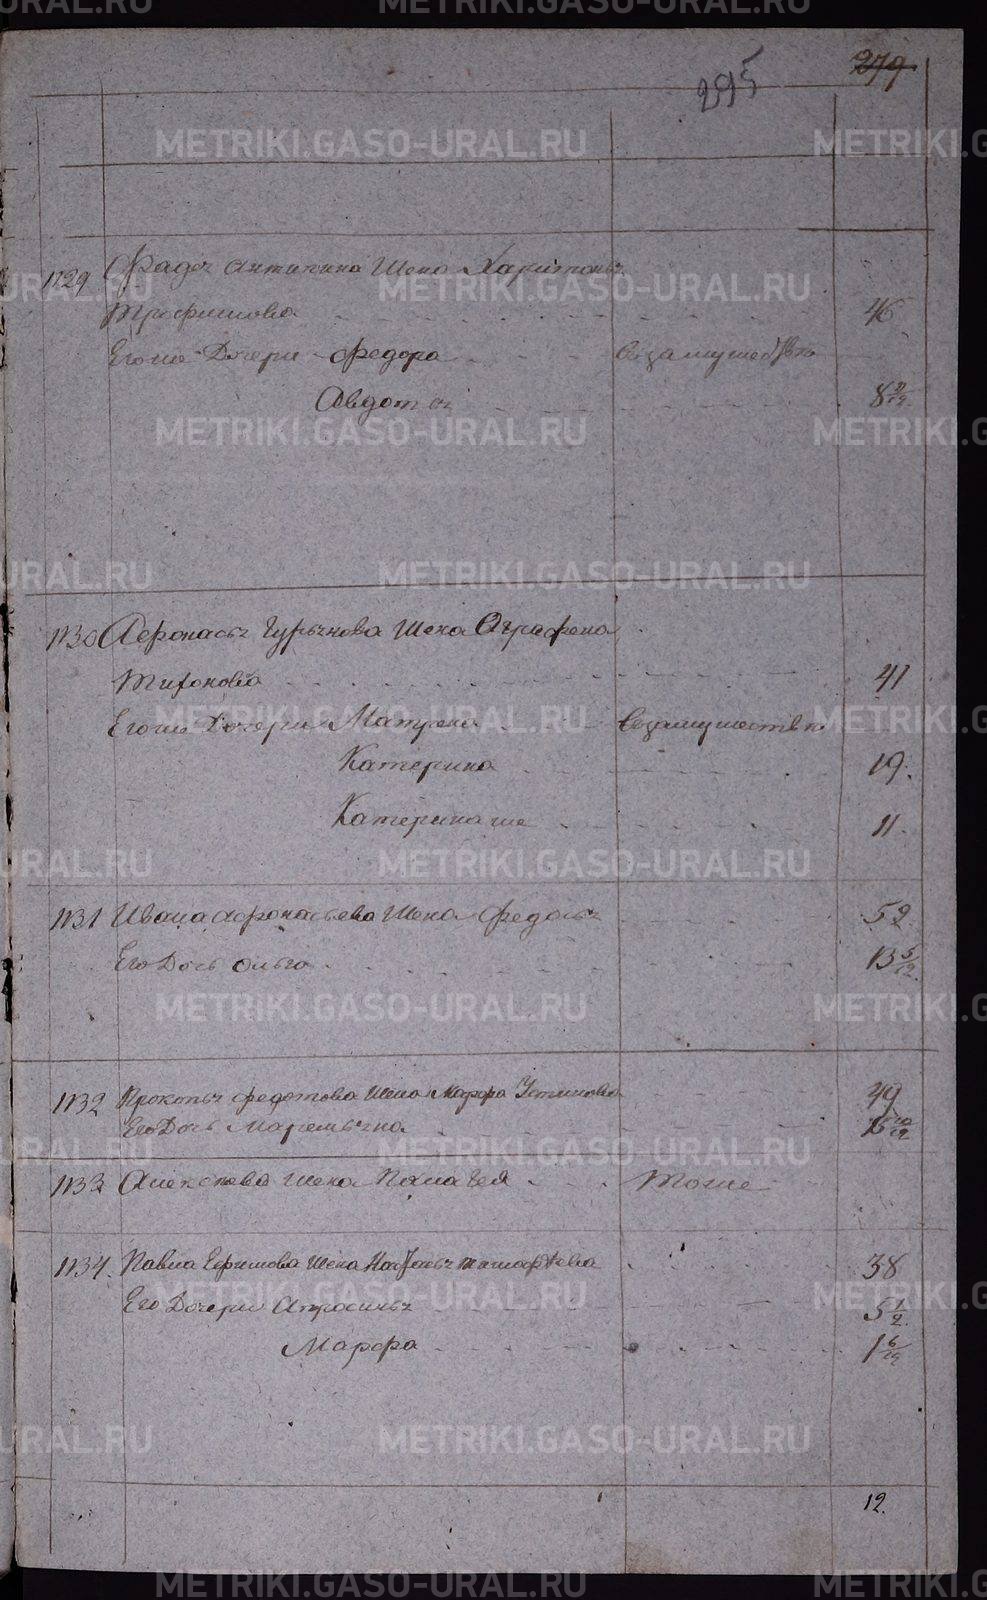 METRIKI.GASO-URAL.RU
279
295
1129 Фадея Антипина Жена Харитонья
Трофимова 46
Его же Дочери Федора взамужестве
Авдотья 8 9/12
1130 Афонасья Гурьянова Жена Аграфена
Тихонова 41
Его же Дочери Матрена взамужестве
Катерина 19.
Катерина же 11.
1131 Ивана Афонасьева Жена Федосья 52.
Его Дочь Ольга 13 5/12
1132 Прокопья Федотова Жена Марфа Устинова 49
Его Дочь Маремьяна 15 10/12
1133 Жена Палагея Тоже
1134. Павла Ефимова Жена Наталья 38
Его Дочери Апросинья 5 1/2
Марфа 1 6/12
12.